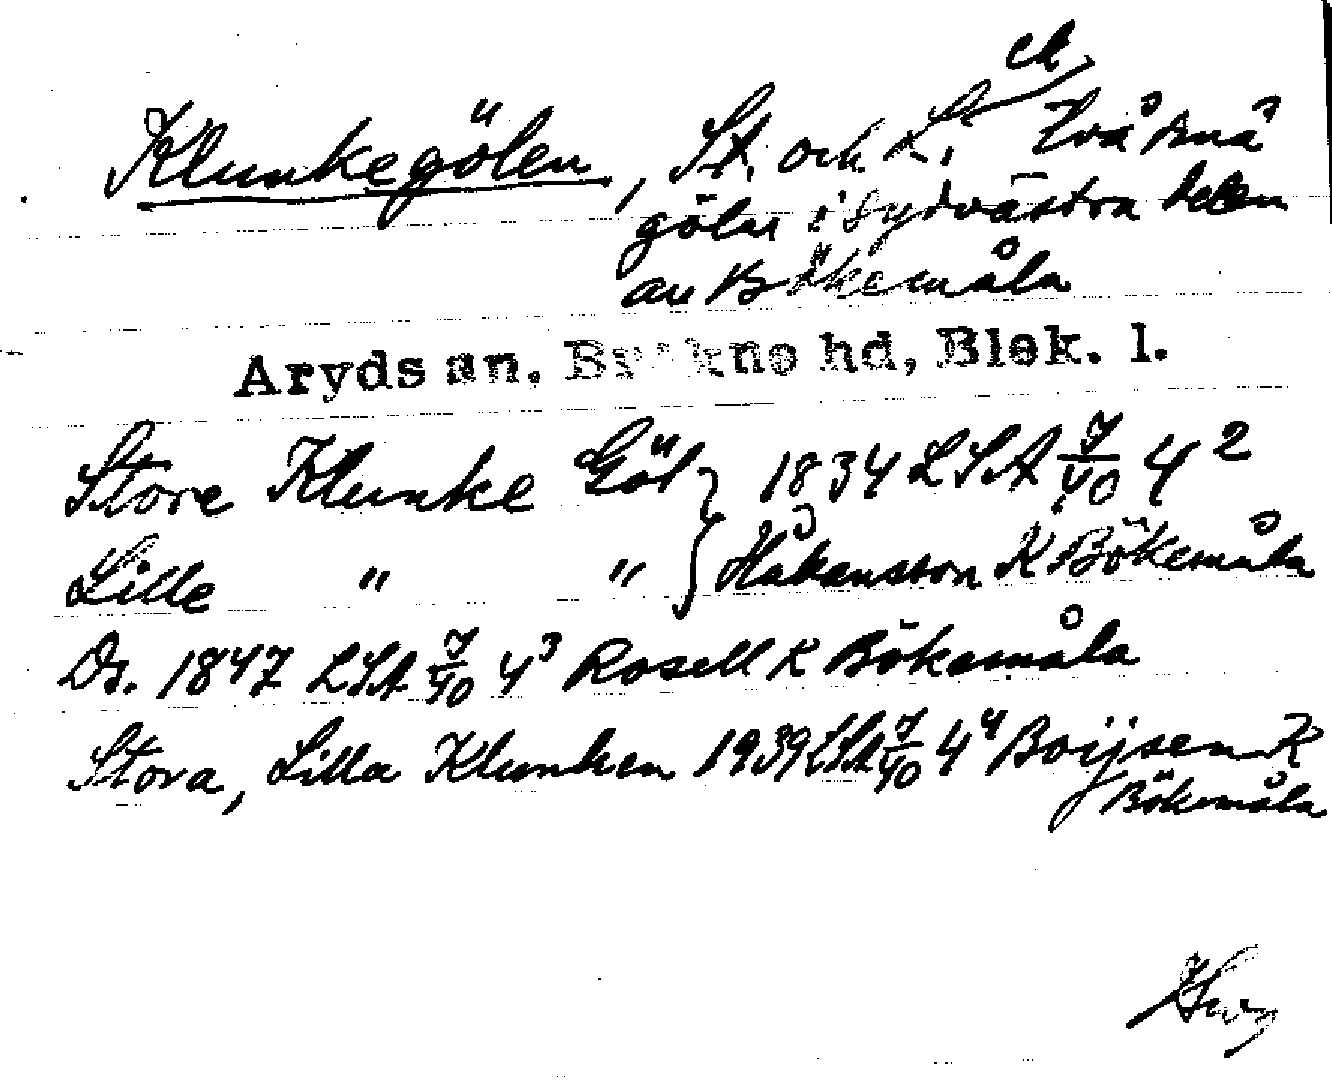 Klunkegölen, St. och L. Två små
gölar i sydvästra delen
av Bökemåla
Aryds sn. Bräkne hd, Blek. l.
Store Klunke Göl } 1834 LSA 7/40 4²
Lille " " } Håkansson K Bökemåla
Ds. 1847 LSA 7/40 4³ Rosell K Bökemåla
Stora, Lilla Klunken 1939 LSA 7/40 4⁴ Boijsen K
Bökemåla